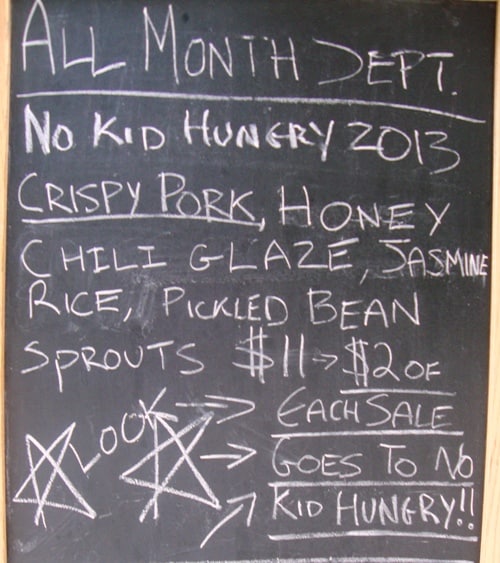 ALL MONTH DEPT.
NO KID HUNGRY 2013
CRISPY PORK, HONEY
CHILI GLAZE, JASMINE
RICE, PICKLED BEAN
SPROUTS $11→$2 OF
LOOK → EACH SALE
→ GOES TO NO
KID HUNGRY!!